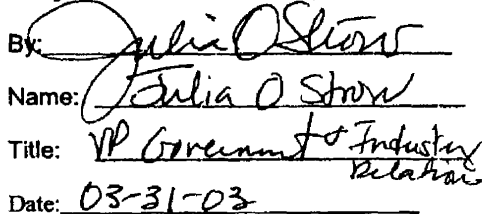 By: Julia O Strow
Name: Julia O Strow
Title: VP Government & Industry
Relations
Date: 03-31-03